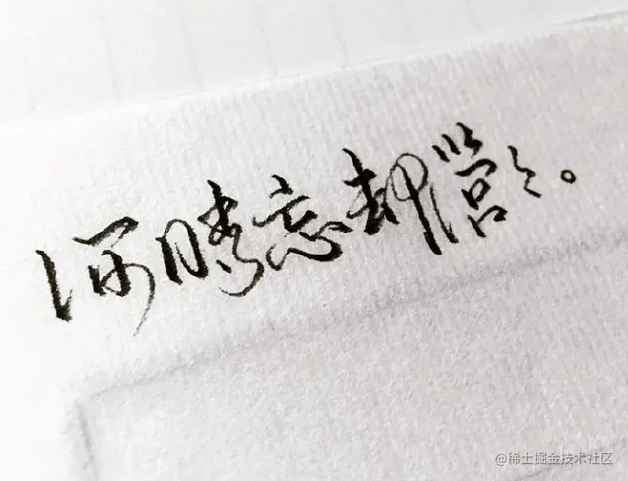 何时忘却营营。
@稀土掘金技术社区